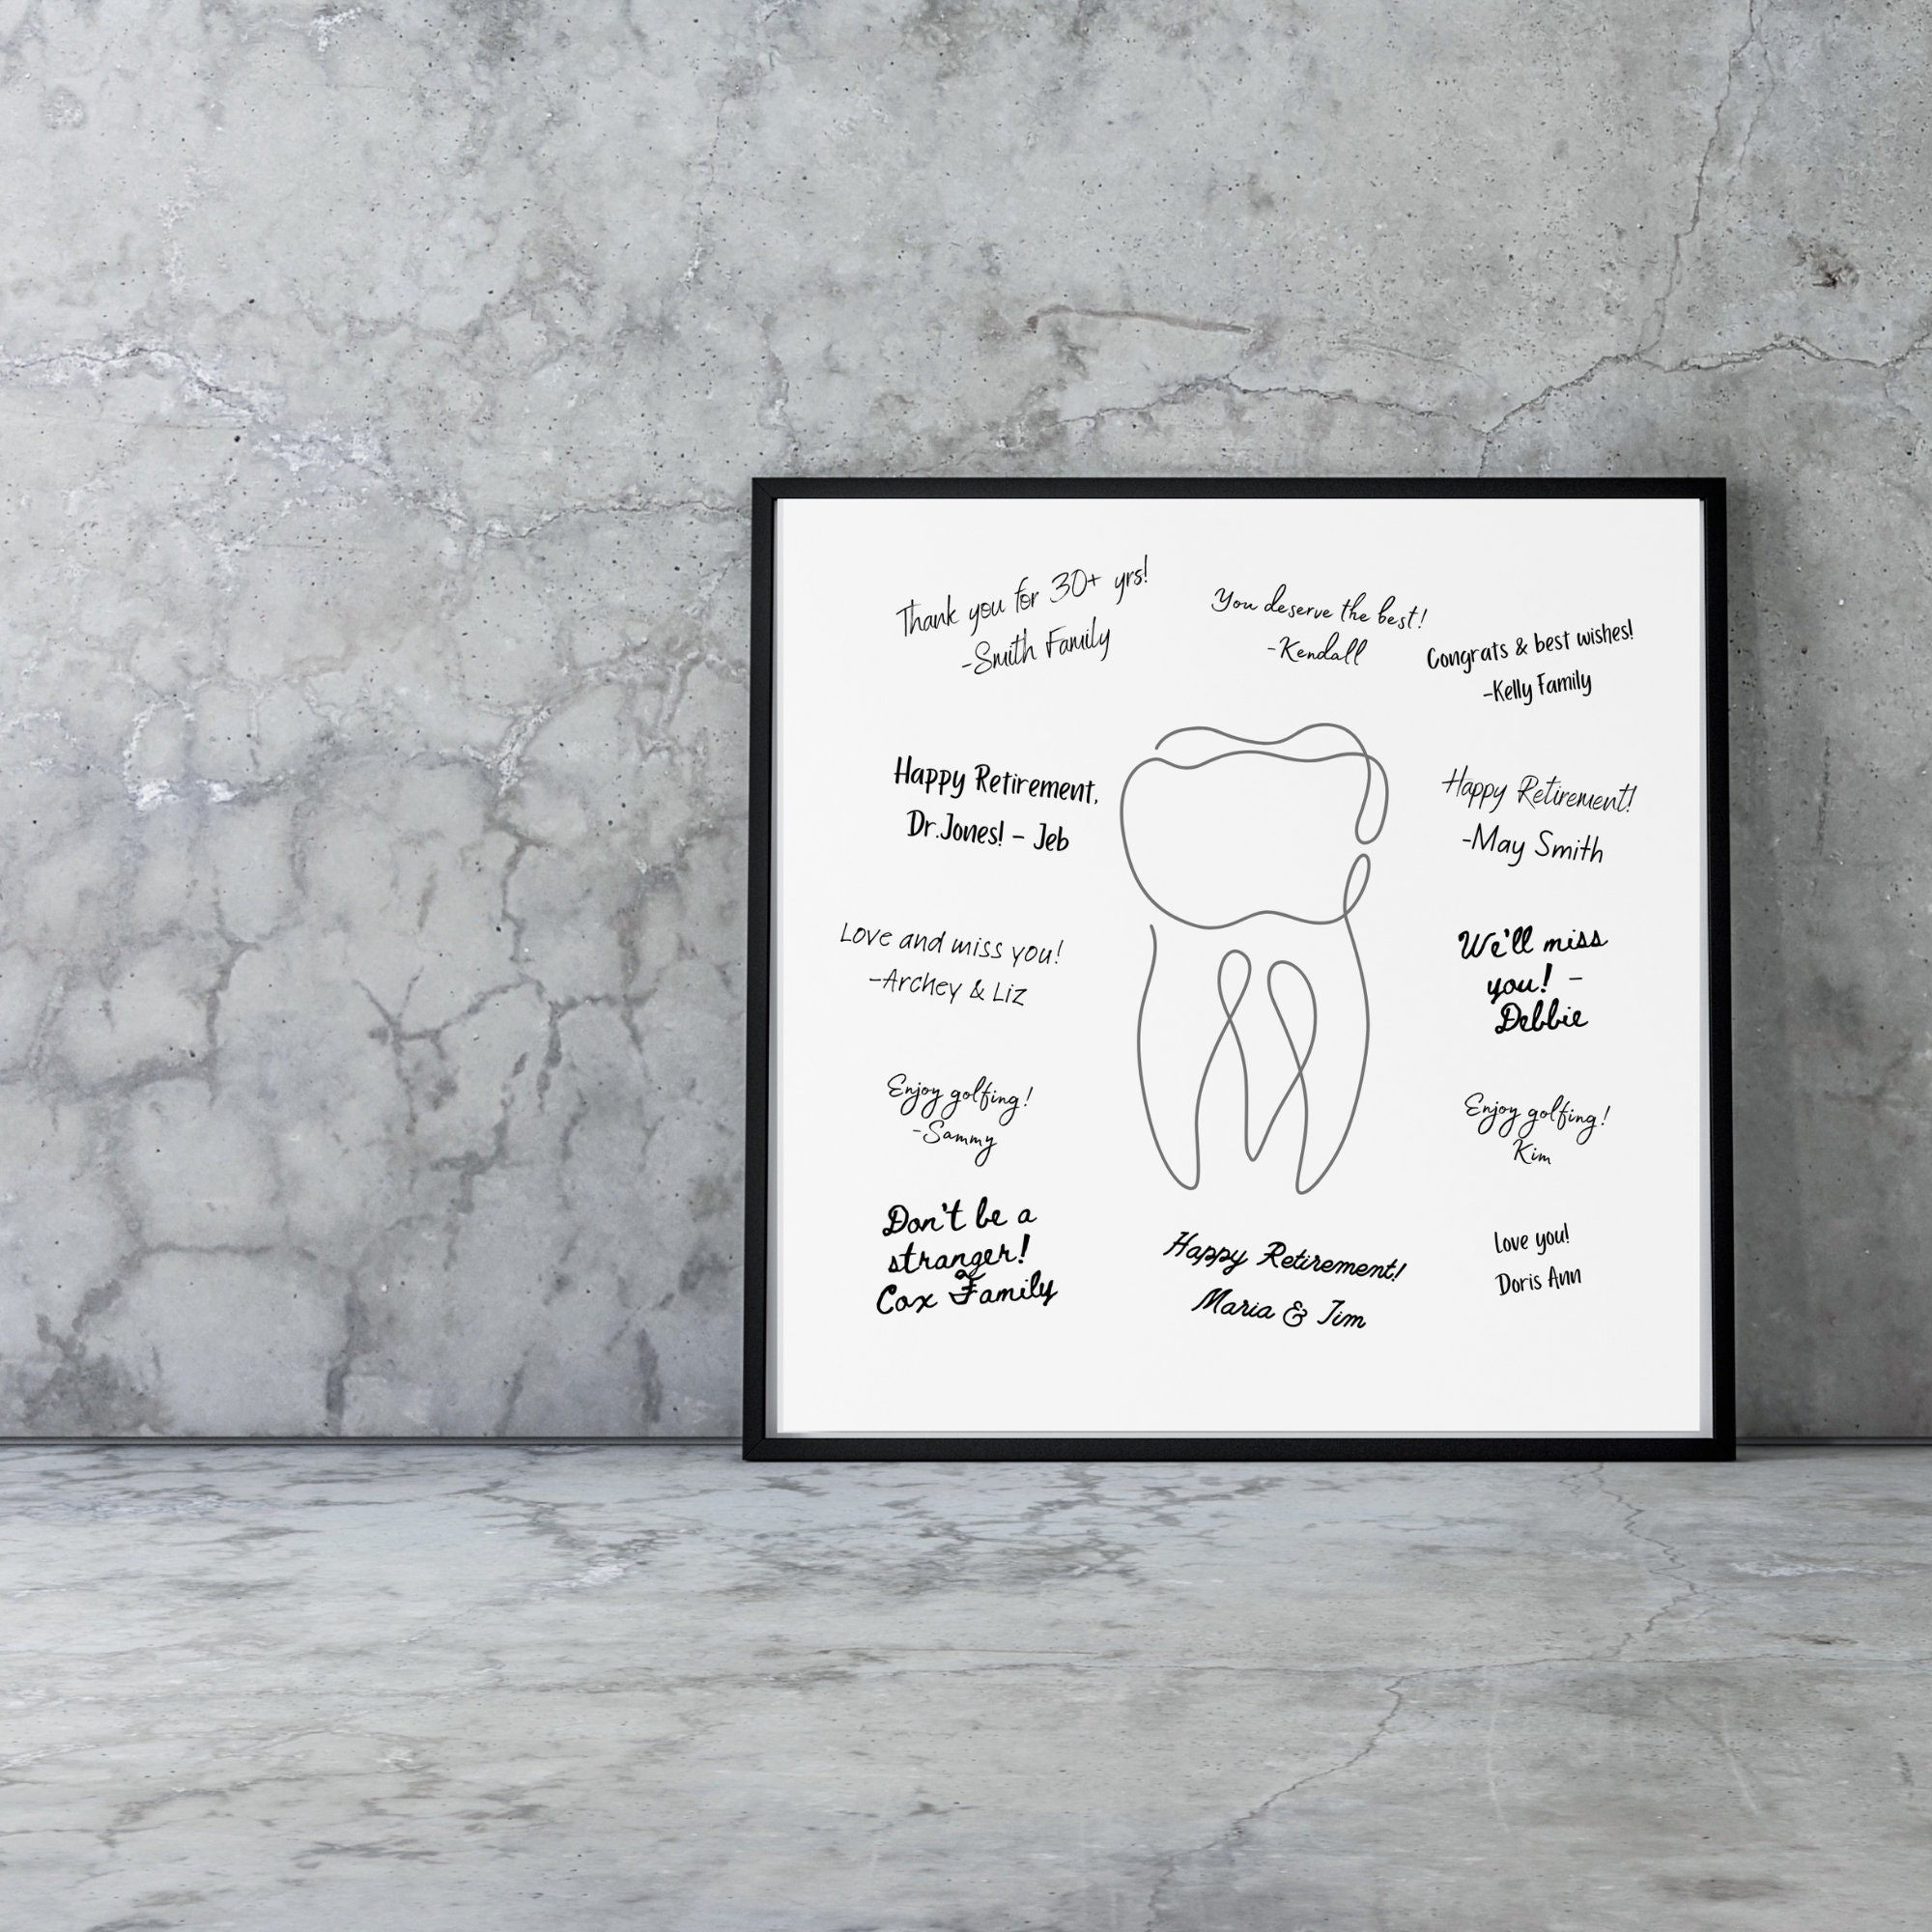 Thank you for 30+ yrs!
-Smith Family
You deserve the best!
-Kendall
Congrats & best wishes!
-Kelly Family
Happy Retirement,
Dr.Jones! - Jeb
Happy Retirement!
-May Smith
Love and miss you!
-Archey & Liz
We'll miss
you! -
Debbie
Enjoy golfing!
-Sammy
Enjoy golfing!
Kim
Don't be a
stranger!
Cox Family
Happy Retirement!
Maria & Jim
Love you!
Doris Ann